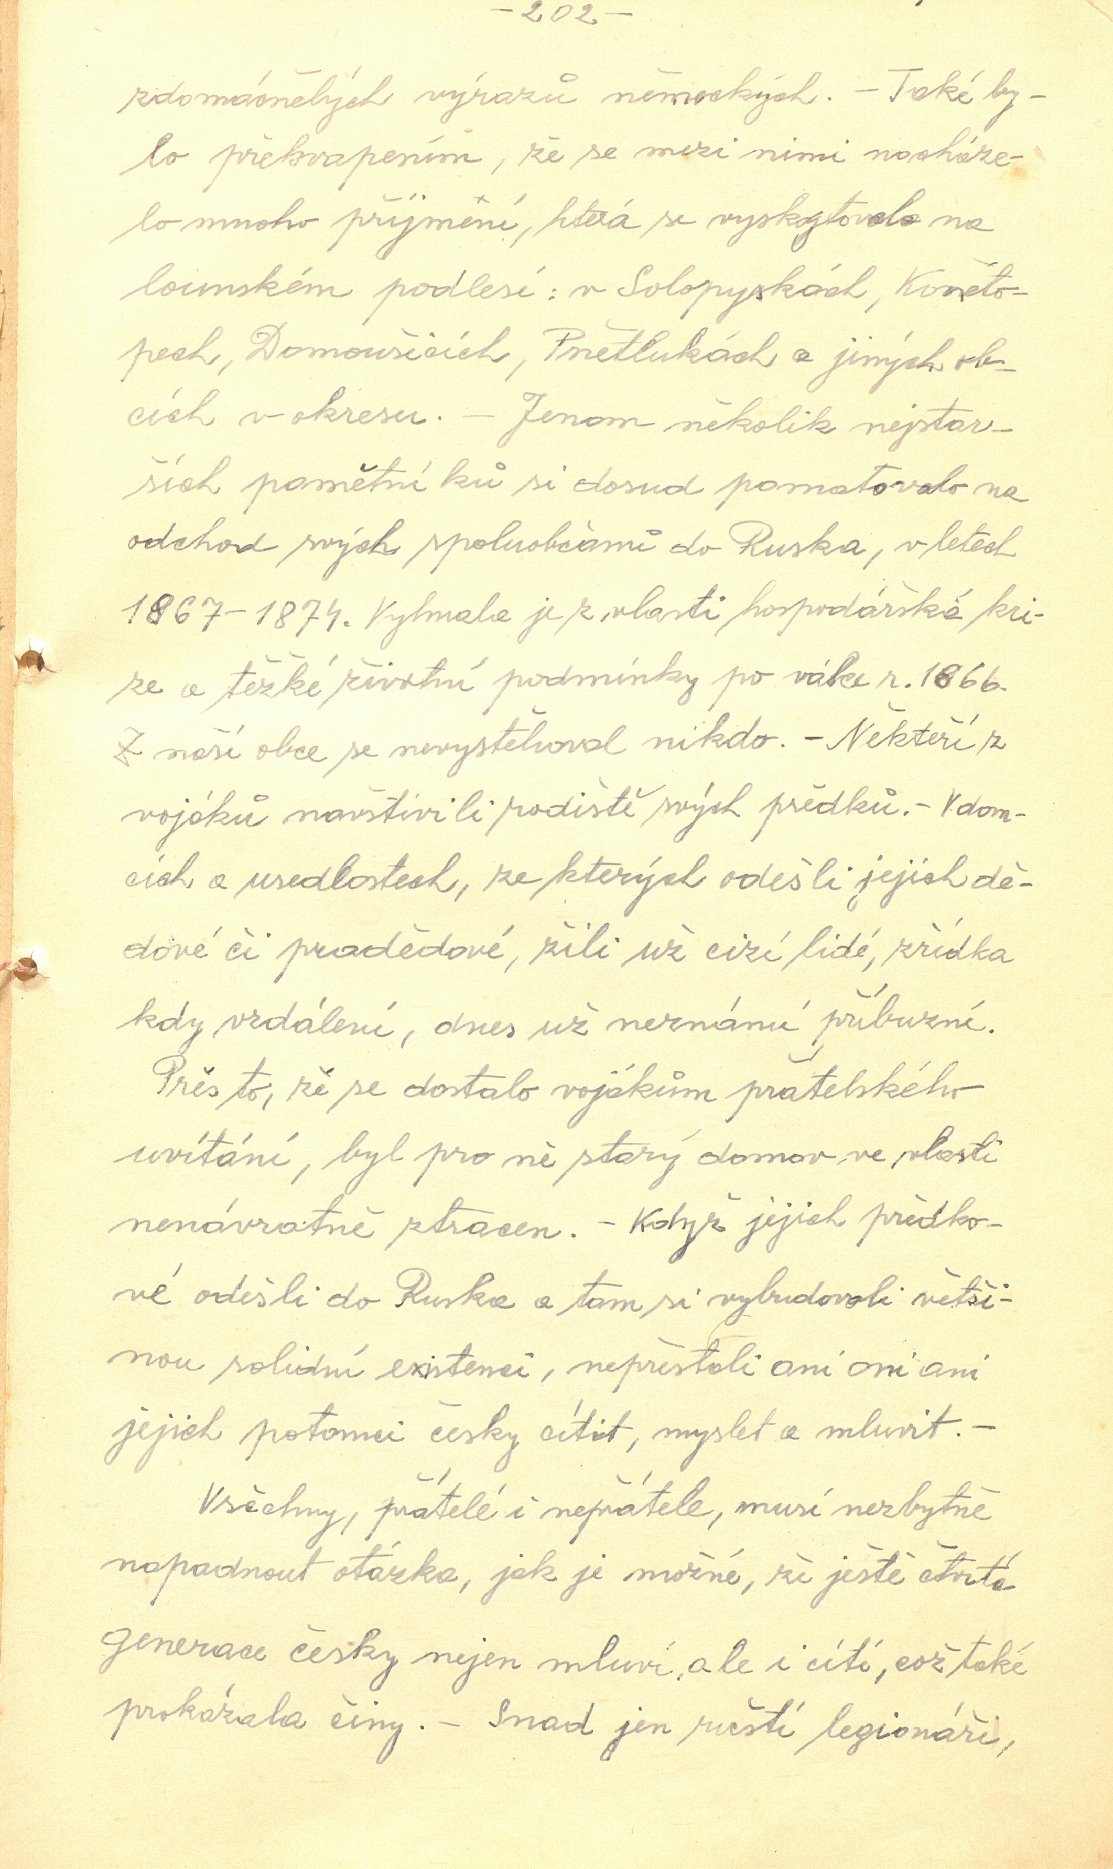 -202-
zdomácnělých výrazů německých. - Také by-
lo překvapením, že se mezi nimi nacháze-
lo mnoho příjmění, která se vyskytovala na
lounském podlesí: v Solopyskách, Koněto-
pech, Domoušicích, Pnětlukách a jiných ob-
cích v okresu. - Jenom několik nejstar-
ších pamětníků si dosud pamatovalo na
odchod svých spoluobčanů do Ruska, v letech
1867-1874. Vyhnala je z vlasti hospodářská kri-
ze a těžké životní podmínky po válce r. 1866.
Z naší obce se nevystěhoval nikdo. - Někteří z
vojáků navštívili rodiště svých předků. - V dom-
cích a usedlostech, ze kterých odešli jejich dě-
dové či pradědové, žili už cizí lidé, zřídka
kdy vzdálení, dnes už neznámí příbuzní.
Přes to, že se dostalo vojákům přátelského
uvítání, byl pro ně starý domov ve vlasti
nenávratně ztracen. - Když jejich předko-
vé odešli do Ruska a tam si vybudovali větši-
nou solidní existenci, nepřestali ani oni ani
jejich potomci česky cítit, myslet a mluvit. -
Všechny, přátelé i nepřátele, musí nezbytně
napadnout otázka, jak je možné, že ještě čtvrtá
generace česky nejen mluví, ale i cítí, což také
prokázala činy. - Snad jen ruští legionáři,